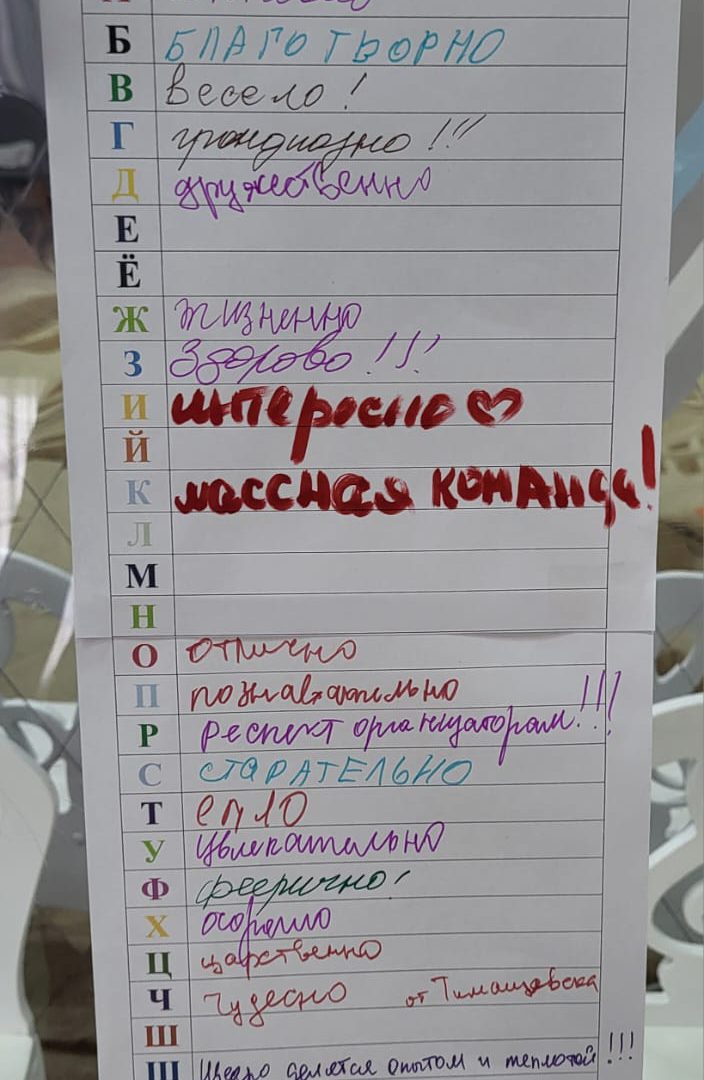 Б БЛАГОТВОРНО
В Весело!
Г грандиозно!!!
Д дружественно
Е
Ё
Ж жизненно
З Здорово!!!
И интересно ♡
Й
К классная команда!
Л
М
Н
О отлично
П познавательно
Р Респект организаторам!!!
С СТАРАТЕЛЬНО
Т епло
У увлекательно
Ф феерично!
Х
Ц царственно
Ч Чудесно от Тимашевска
Ш
Щ Щедро делятся опытом и теплотой!!!